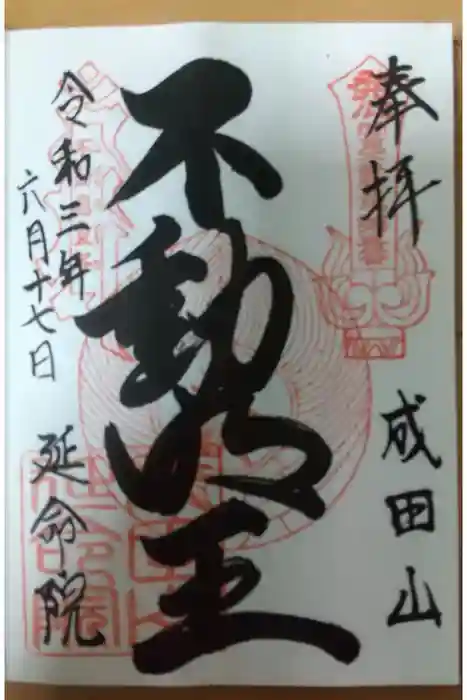 奉拝
成田山
不動明王
令和三年
六月十七日
延命院